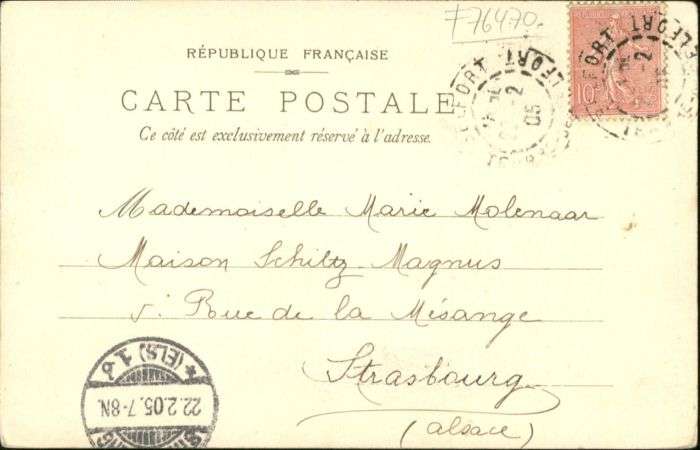 F76470.
RÉPUBLIQUE FRANÇAISE
CARTE POSTALE
Ce côté est exclusivement réservé à l'adresse.
BELFORT
-2
05
10
BELFORT
-2
05
Mademoiselle Marie Molenaar
Maison Schiltz-Magnus
5 Rue de la Mésange
Strasbourg
(Alsace)
(ELS) 1
22.2.05.7-8N.